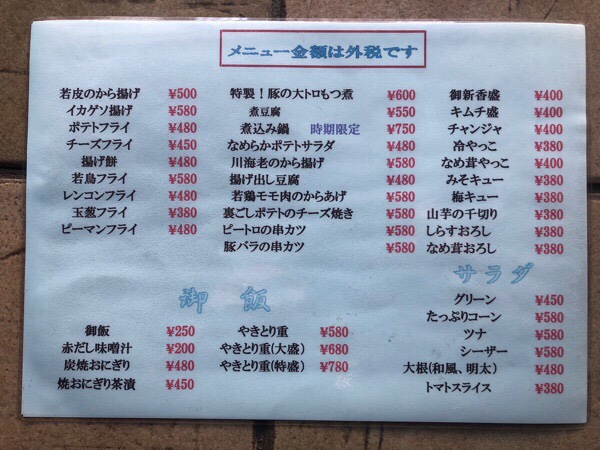 メニュー金額は外税です
若皮のから揚げ ¥500
イカゲソ揚げ ¥580
ポテトフライ ¥480
チーズフライ ¥450
揚げ餅 ¥480
若鳥フライ ¥580
レンコンフライ ¥480
玉葱フライ ¥380
ピーマンフライ ¥480
特製！豚の大トロもつ煮 ¥600
煮豆腐 ¥550
煮込み鍋 時期限定 ¥750
なめらかポテトサラダ ¥480
川海老のから揚げ ¥580
揚げ出し豆腐 ¥480
若鶏モモ肉のからあげ ¥580
裏ごしポテトのチーズ焼き ¥580
ピートロの串カツ ¥580
豚バラの串カツ ¥580
御新香盛 ¥400
キムチ盛 ¥400
チャンジャ ¥400
冷やっこ ¥380
なめ茸やっこ ¥400
みそキュー ¥380
梅キュー ¥380
山芋の千切り ¥380
しらすおろし ¥380
なめ茸おろし ¥380
サラダ
グリーン ¥450
たっぷりコーン ¥580
ツナ ¥580
シーザー ¥580
大根(和風、明太) ¥480
トマトスライス ¥380
御飯
御飯 ¥250
赤だし味噌汁 ¥200
炭焼おにぎり ¥480
焼おにぎり茶漬 ¥450
やきとり重 ¥580
やきとり重(大盛) ¥680
やきとり重(特盛) ¥780